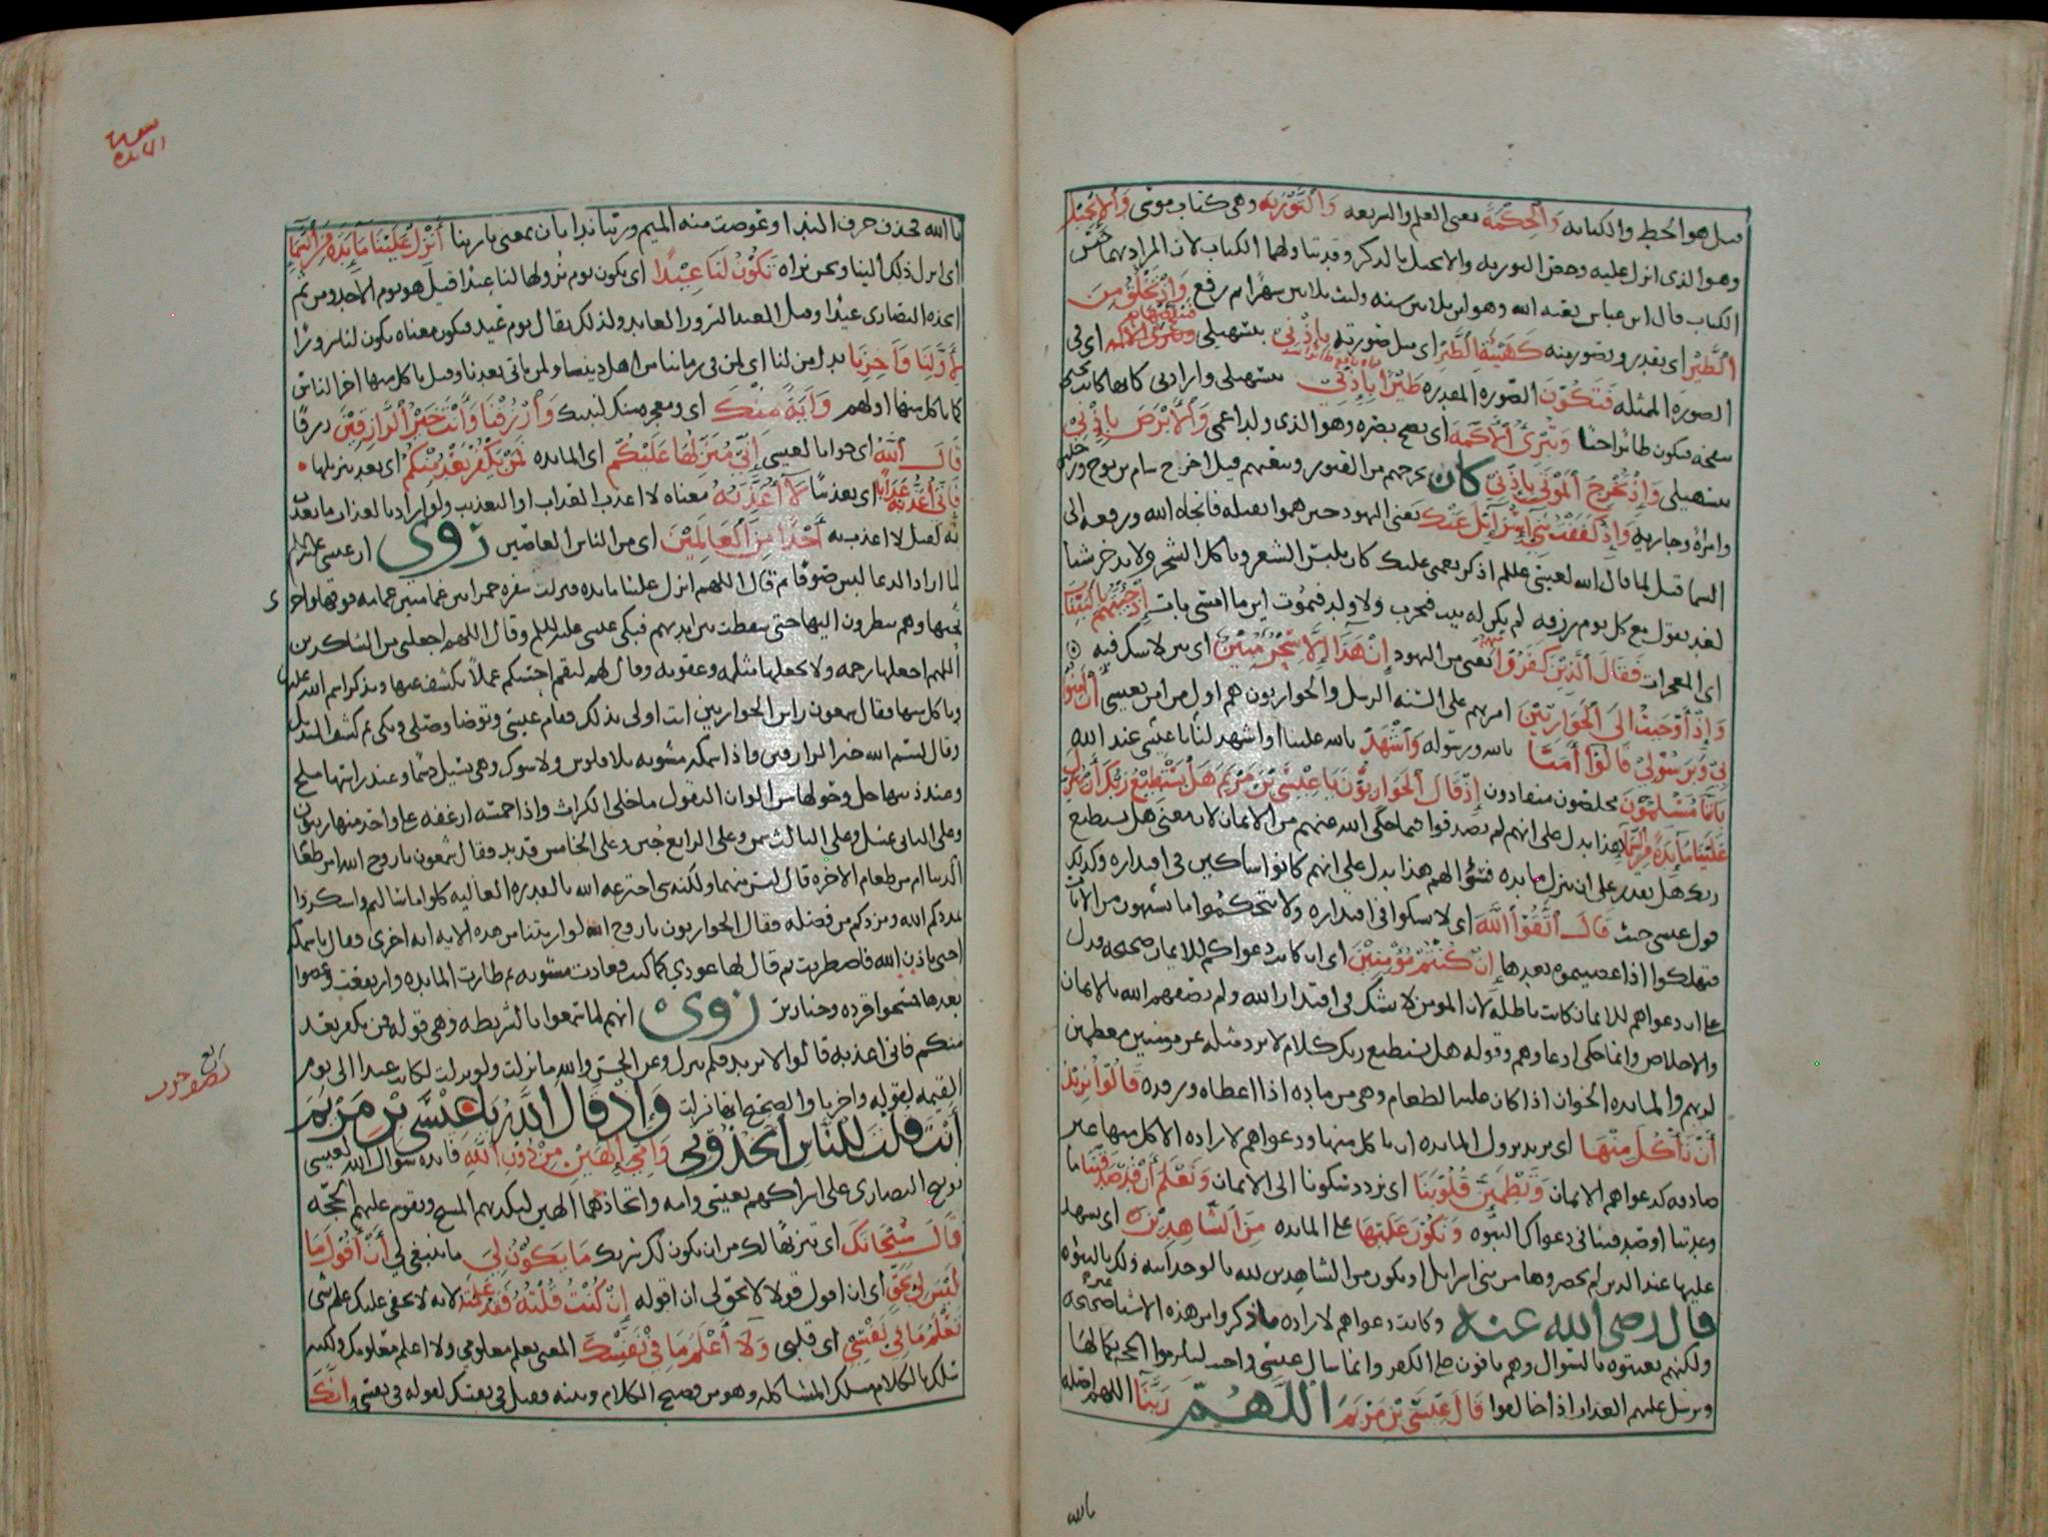 قيل هو الخط والكتابه وَالْحِكْمَةَ يعنى العلم والشريعه وَالتَّوْرَيةَ وهى كتاب موسى وَالْإِنْجِيلَ
وهو الذى انزل عليه وخص التوريه والانجيل بالذكر وقد تناولهما الكتاب لان المراد بهما جنس
الكتاب قال ابن عباس بعثه الله وهو ابن ثلاثين سنه ولبث ثلاثين شهرا ثم رفع وَإِذْ تَخْلُقُ مِنَ
الطِّيْنِ اى تقدر وتصور منه كَهَيْئَةِ الطَّيْرِ اى مثل صورته بِإِذْنِي بتسهيلى اى فى
الصورة الممثله فَتَكُوْنَ الصورة المقدره طَيْرًا بِإِذْنِي بتسهيلى وارادتى كانها كانت
نفخه فيكون طائرا حيا وَتُبْرِئُ الْأَكْمَهَ اى يصح بصره وهو الذى ولد اعمى وَالْأَبْرَصَ بِإِذْنِي
بتسهيلى وَإِذْ تُخْرِجُ الْمَوْتَى بِإِذْنِي كان يخرجهم من القبور ويبعثهم قيل اخرج سام بن نوح ورجلين
وامراة وجاريه وَإِذْ كَفَفْتُ بَنِي إِسْرَآئِيلَ عَنْكَ يعنى اليهود حين هموا بقتله فانجاه الله ورفعه الى
السما قيل لما قال الله لعيسى عللم اذكر نعمتى عليك كان يلبس الشعر وياكل الشجر ولا يدخر شيا
لغد يقول مع كل يوم رزقه لم يكن له بيت فيخرب ولا ولد فيموت اين ما امسى بات إِذْ جِئْتَهُمْ بِالْبَيِّنَاتِ
اى المعجزات فَقَالَ الَّذِيْنَ كَفَرُوْا مِنْهُمْ يعنى من اليهود إِنْ هَذَا إِلَّا سِحْرٌ مُبِيْنٌ اى بين لا شك فيه
وَإِذْ أَوْحَيْتُ إِلَى الْحَوَارِيِّيْنَ امرتهم على السنه الرسل والحواريون هم اول من امن بعيسى أَنْ آمِنُوْا
بِيْ وَبِرَسُوْلِيْ قَالُوْا أَمَنَّا بالله ورسوله وَاشْهَدْ يالله علينا او اشهد لنا ياعيسى عند الله
بِأَنَّنَا مُسْلِمُوْنَ مخلصون منقادون إِذْ قَالَ الْحَوَارِيُّوْنَ يَا عِيْسَى بْنَ مَرْيَمَ هَلْ يَسْتَطِيْعُ رَبُّكَ أَنْ يُنَزِّلَ
عَلَيْنَا مَآئِدَةً مِّنَ السَّمَآءِ هذا يدل على انهم لم يصدقوا فيما حكى الله عنهم من الايمان لان معنى هل يستطيع
ربك هل يقدر على ان ينزل مائده فسؤالهم هذا يدل على انهم كانوا شاكين فى اقتداره وكذلك
قول عيسى حيث قَالَ اتَّقُوْا اللَّهَ اى لا تشكوا فى اقتداره ولا تتحكموا ما تشتهون من الايات
فتهلكوا اذا عصيتموه بعدها إِنْ كُنْتُمْ مُؤْمِنِيْنَ اى ان كانت دعواكم للايمان صحيحه فدل
على ان دعواهم للايمان كانت باطله لان المومن لا يشك فى اقتدار الله ولم يصفهم الله بالايمان
والاخلاص وانما حكى ادعاوهم وقوله هل يستطيع ربك كلام لا يرد مثله عن مومنين معظمين
لربهم والمائده الخوان اذا كان عليه الطعام وهى من ماده اذا اعطاه ورفده قَالُوْا نُرِيْدُ
أَنْ نَأْكُلَ مِنْهَا اى نريد نزول المائده ان ناكل منها ودعواهم لاراده الاكل منها غير
صادقه كدعواهم الايمان وَتَطْمَئِنَّ قُلُوْبُنَا اى نزدد سكونا الى الايمان وَنَعْلَمَ أَنْ قَدْ صَدَقْتَنَا ما
وعدتنا او صدقتنا فى دعواك النبوه وَنَكُوْنَ عَلَيْهَا على المائده مِنَ الشَّاهِدِيْنَ اى نشهد
عليها عند الذين لم يحضروها من بنى اسرائيل او نكون من الشاهدين لله بالوحدانيه ولك بالنبوه
قال رضى الله عنه وكانت دعواهم لاراده ما ذكروا من هذه الاشيا غير صحيحه
ولكنهم بعنتوه بالسوال وهم باقون على الكفر وانما سال عيسى واجيب ليلزموا الحجه بكمالها
ويرسل عليهم العذاب اذا خالفوا قَالَ عِيْسَى بْنُ مَرْيَمَ اللَّهُمَّ رَبَّنَا اللهم اصله
يالله
سورة
المايده
ياالله فحذف حرف الندا وعوضت منه الميم وربنا ندا ثان بمعنى ياربنا أَنْزِلْ عَلَيْنَا مَآئِدَةً مِنَ السَّمَآءِ
اى انزل ذلك الينا ونحن نراه تَكُوْنُ لَنَا عِيْدًا اى يكون يوم نزولها لنا عيدا قيل هو يوم الاحد ومن ثم
اتخذه النصارى عيدا وقيل العيد السرور العايد ولذلك يقال يوم عيد فيكون معناه يكون لنا سرورا
لِأَوَّلِنَا وَآخِرِنَا بدل من لنا اى لمن فى زماننا من اهل ديننا ولمن ياتى بعدنا وقيل ياكل منها اخر الناس
كما ياكل منها اولهم وَآيَةً مِنْكَ اى ومعجزه منك لنبيك وَارْزُقْنَا وَأَنْتَ خَيْرُ الرَّازِقِيْنَ رزقا
قَالَ اللَّهُ اى جوابا لعيسى إِنِّي مُنَزِّلُهَا عَلَيْكُمْ اى المائده فَمَنْ يَكْفُرْ بَعْدُ مِنْكُمْ اى بعد تنزيلها
فَإِنِّي أُعَذِّبُهُ عَذَابًا اى تعذيبا لَا أُعَذِّبُهُ معناه لا اعذب العذاب او التعذيب ولو اراد بالعذاب ما يعذب
به لقيل لا اعذب به أَحَدًا مِنَ الْعَالَمِيْنَ اى من الناس العاصين روى ان عيسى عليه السلام
لما اراد الدعا لبس صوفا ثم قال اللهم انزل علينا مائده فنزلت سفره حمرا بين غمامتين غمامه فوقها واخرى
تحتها وهم ينظرون اليها حتى سقطت بين ايديهم فبكى عيسى عليه السلام وقال اللهم اجعلنى من الشاكرين
اللهم اجعلها رحمه ولا تجعلها مثله وعقوبه وقال لهم ليقم احسنكم عملا يكشف عنها ويذكر اسم الله عليها
وياكل منها فقال شمعون راس الحواريين انت اولى بذلك فقام عيسى وتوضا وصلى وبكى ثم كشف المنديل
وقال بسم الله خير الرازقين واذا سمكه مشويه بلا فلوس ولا شوك وهى تسيل دسما وعند راسها ملح
وعند ذنبها خل وحولها من الوان البقول ما خلى الكراث واذا خمسه ارغفه على واحد منها زيتون
وعلى الثانى عسل وعلى الثالث سمن وعلى الرابع جبن وعلى الخامس قديد وقال شمعون ياروح الله امن طعام
الدنيا ام من طعام الاخره قال ليس منهما ولكنه شى اخترعه الله بالقدره العاليه كلوا ما سالتم واشكروا
يمددكم الله ويزدكم من فضله فقال الحواريون ياروح الله لو اريتنا من هذه الايه ايه اخرى فقال ياسمكه
احيى باذن الله فاضطربت ثم قال لها عودى كما كنت فعادت مشويه ثم طارت المائده وارتفعت وعصوا
بعدها فمسخوا قرده وخنازير روى انهم لما سمعوا بالشريطه وهى قوله فمن يكفر بعد
منكم فانى اعذبه قالوا لا نريد فلم تنزل وعن الحسن والله ما نزلت ولو نزلت لكانت عيدا الى يوم
القيمه لقوله واخرنا والصحيح انها نزلت وَإِذْ قَالَ اللَّهُ يَا عِيْسَى بْنَ مَرْيَمَ
أَنْتَ قُلْتَ لِلنَّاسِ اتَّخِذُوْنِي وَأُمِّيَ إِلَهَيْنِ مِنْ دُوْنِ اللَّهِ فائده سوال الله لعيسى
توبيخ النصارى على اشراكهم بعيسى وامه واتخاذهما الهين ليكذبهم المسيح وتقوم عليهم الحجه
قَالَ سُبْحَانَكَ اى تنزيها لك من ان يكون لك شريك مَا يَكُوْنُ لِيَ ما ينبغى لي أَنْ أَقُوْلَ مَا
لَيْسَ لِي بِحَقٍّ اى ان اقول قولا لا يحق لى ان اقوله إِنْ كُنْتُ قُلْتُهُ فَقَدْ عَلِمْتَهُ لانه لا يخفى عليك علم شى
تَعْلَمُ مَا فِي نَفْسِي اى قلبى وَلَا أَعْلَمُ مَا فِيْ نَفْسِكَ المعنى تعلم معلومى ولا اعلم معلومك ولكنه
سلك بالكلام مسلك المشاكله وهو من فصيح الكلام وبينه وقيل فى نفسك لقوله فى نفسى إِنَّكَ